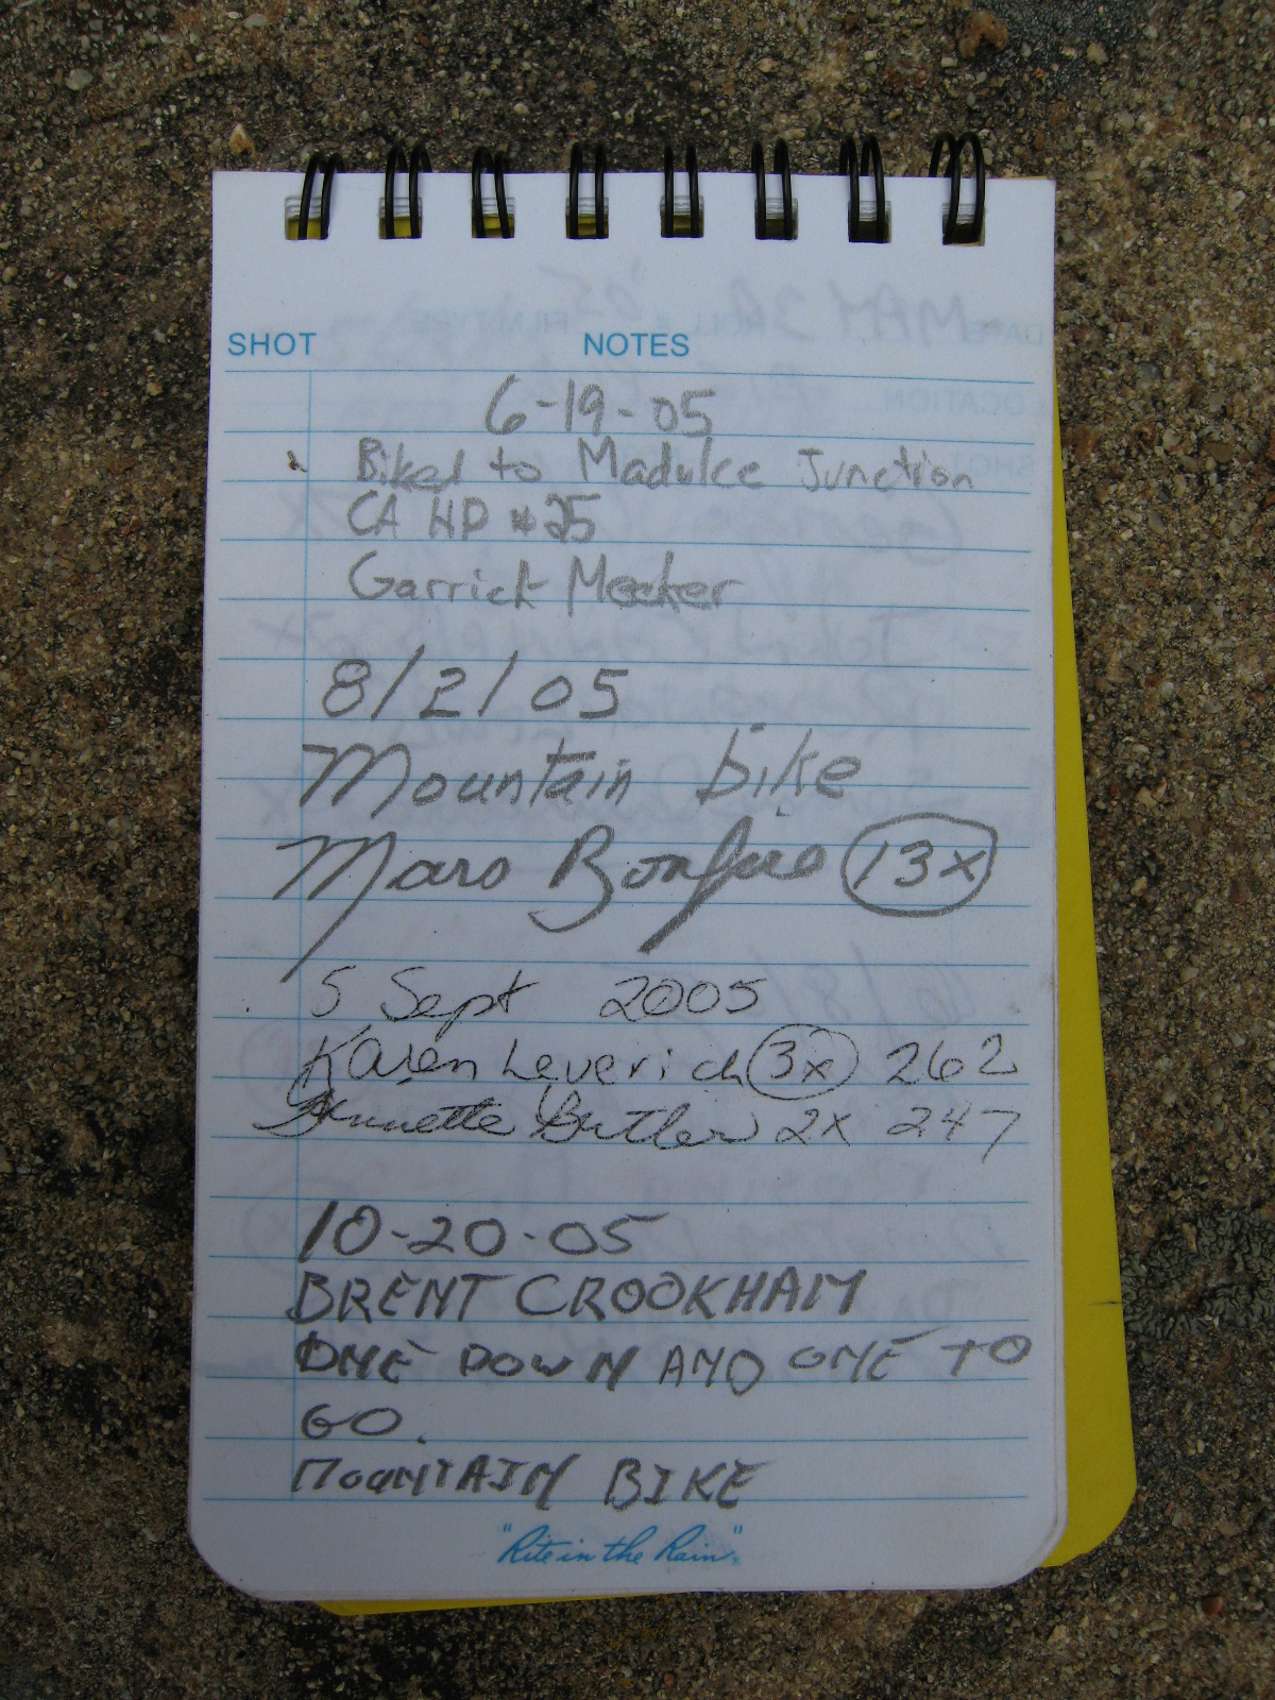 SHOT NOTES
6-19-05
Biked to Madulce Junction
CA HP #25
Garrick Meeker
8/2/05
Mountain bike
Maro Bonfire 13x
5 Sept 2005
Karen Leverich 3x 262
Annette Butler 2x 247
10-20-05
BRENT CROOKHAM
ONE DOWN AND ONE TO
GO.
MOUNTAIN BIKE
"Rite in the Rain"